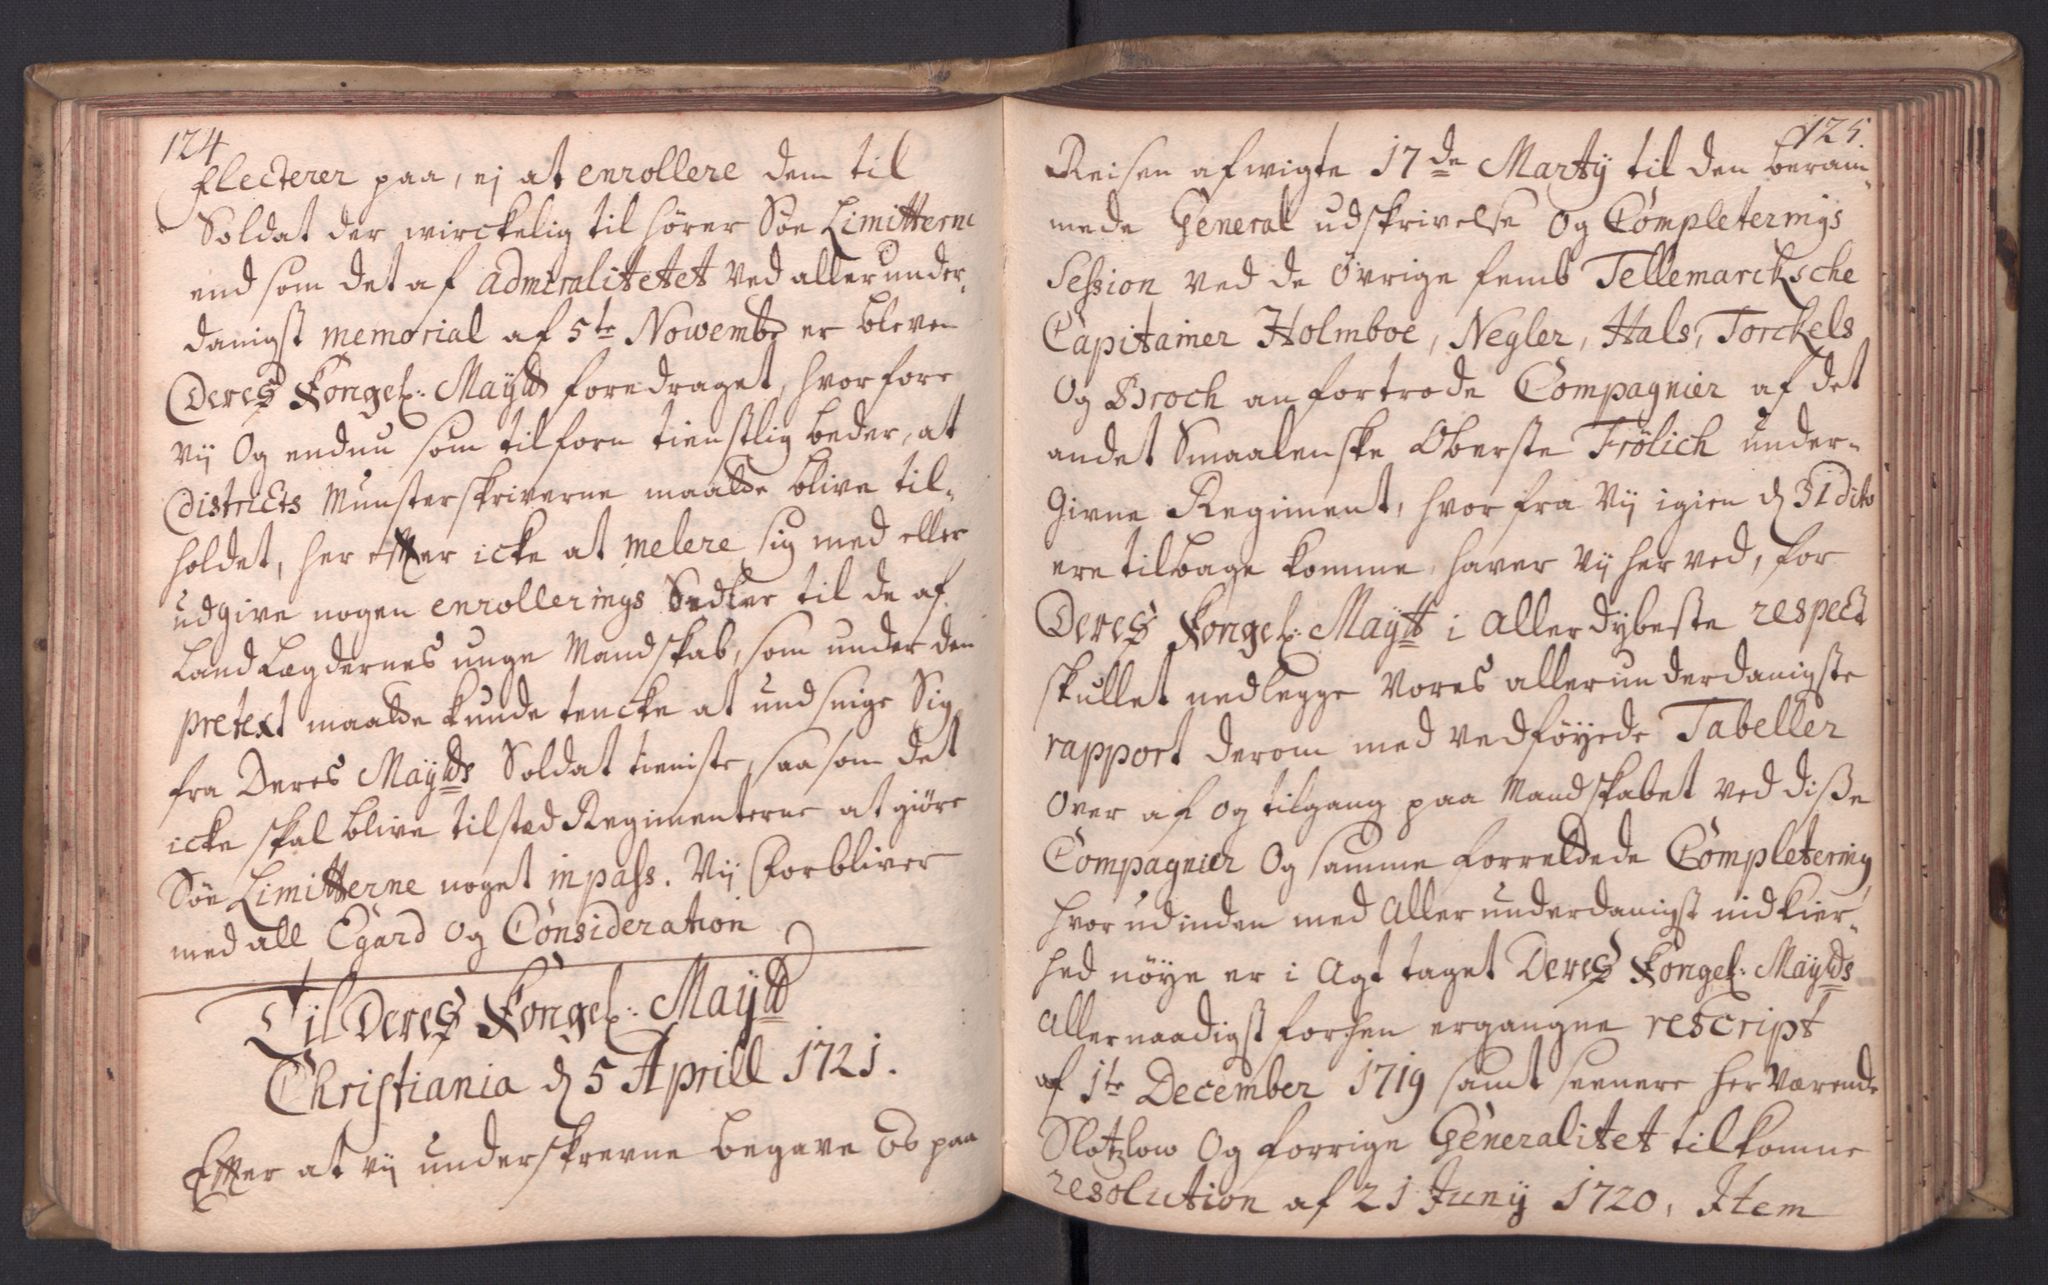 124
flecterer paa, ej at enrollere dem til
Soldat der wirckelig til hører Søe Limitterne
end som det af Admiralitetet ved allerunder-
danigst memorial af 5te Novembr er bleven
Deres Kongel: Maytt foredraget, hvorfore
vij og endnu som tilforn tienstlig beder, at
Districts Munsterskriverne maatte blive til-
holdet, her effter icke at melere sig med eller
udgive nogen enrollerings Sedler til de af
Land Lægdernes unge Mandskab, som under den
pretext maatte kunde tencke at undsnige Sig
fra Deres Maytts Soldat tieniste, saasom det
icke skal blive tilsted Regimenterne at giøre
Søe Limitterne noget inpass. Vij Forbliver
med all Egard og Consideration
Til Deres Kongel: Maytt
Christiania d 5 Aprill 1721.
Effter at vij underskrevne begave Os paa
125
Reisen afwigte 17de Martij til den beram-
mede General udskrivelse og Completerings
Session ved de Øvrige femb Tellemarcksche
Capitainer Holmboe, Negler, Hals, Torckels
Og Broch anfortrode Compagnier af det
andet Smaalenske Oberste Frölich under-
givne Regiment, hvorfra vij igien d 31 dito
ere tilbage komme, haver vij herved, for
Deres Kongel: Maytt i allerdybeste respect
skullet nedlegge vores allerunderdanigste
rapport derom med vedføyede Tabeller
over af og tilgang paa Mandskabet ved disse
Compagnier og samme forrettede Completering,
hvorudinden med Allerunderdanigst nidkier-
hed nøye er i Agt taget Deres Kongel: Maytts
Allernaadigst forhen ergangne rescript
af 1te December 1719 samt seenere herværende
Slotzlow og forrige Generalitet tilkomne
resolution af 21 Junij 1720, Item